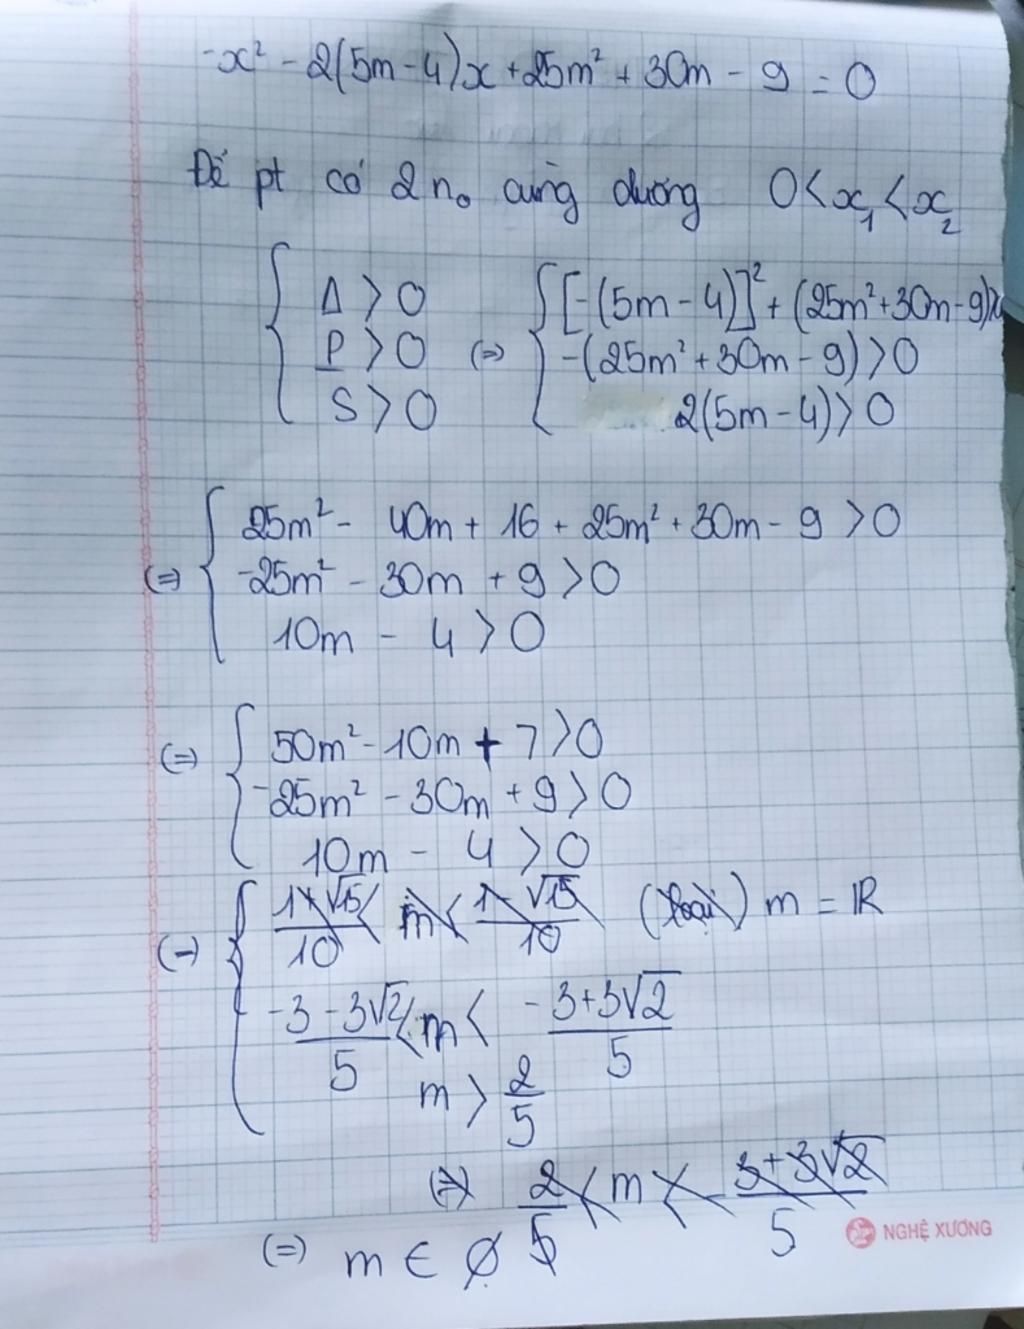 -x² - 2(5m-4)x + 25m² + 30m - 9 = 0
Để pt có 2 n₀ cùng dương 0 < x₁ < x₂
{ Δ > 0 (=) { [-(5m-4)]² + (25m²+30m-9)>0
P > 0 -(25m²+30m-9) > 0
S > 0 2(5m-4) > 0
(=) { 25m² - 40m + 16 + 25m² + 30m - 9 > 0
-25m² - 30m + 9 > 0
10m - 4 > 0
(=) { 50m² - 10m + 7 > 0
-25m² - 30m + 9 > 0
10m - 4 > 0
(=) { (1+√15)/10 < m < (1-√15)/10 (loại) m = ℝ
(-3-3√2)/5 < m < (-3+3√2)/5
m > 2/5
(=) 2/5 < m < (3+3√2)/5
(=) m ∈ ∅
NGHỆ XƯƠNG